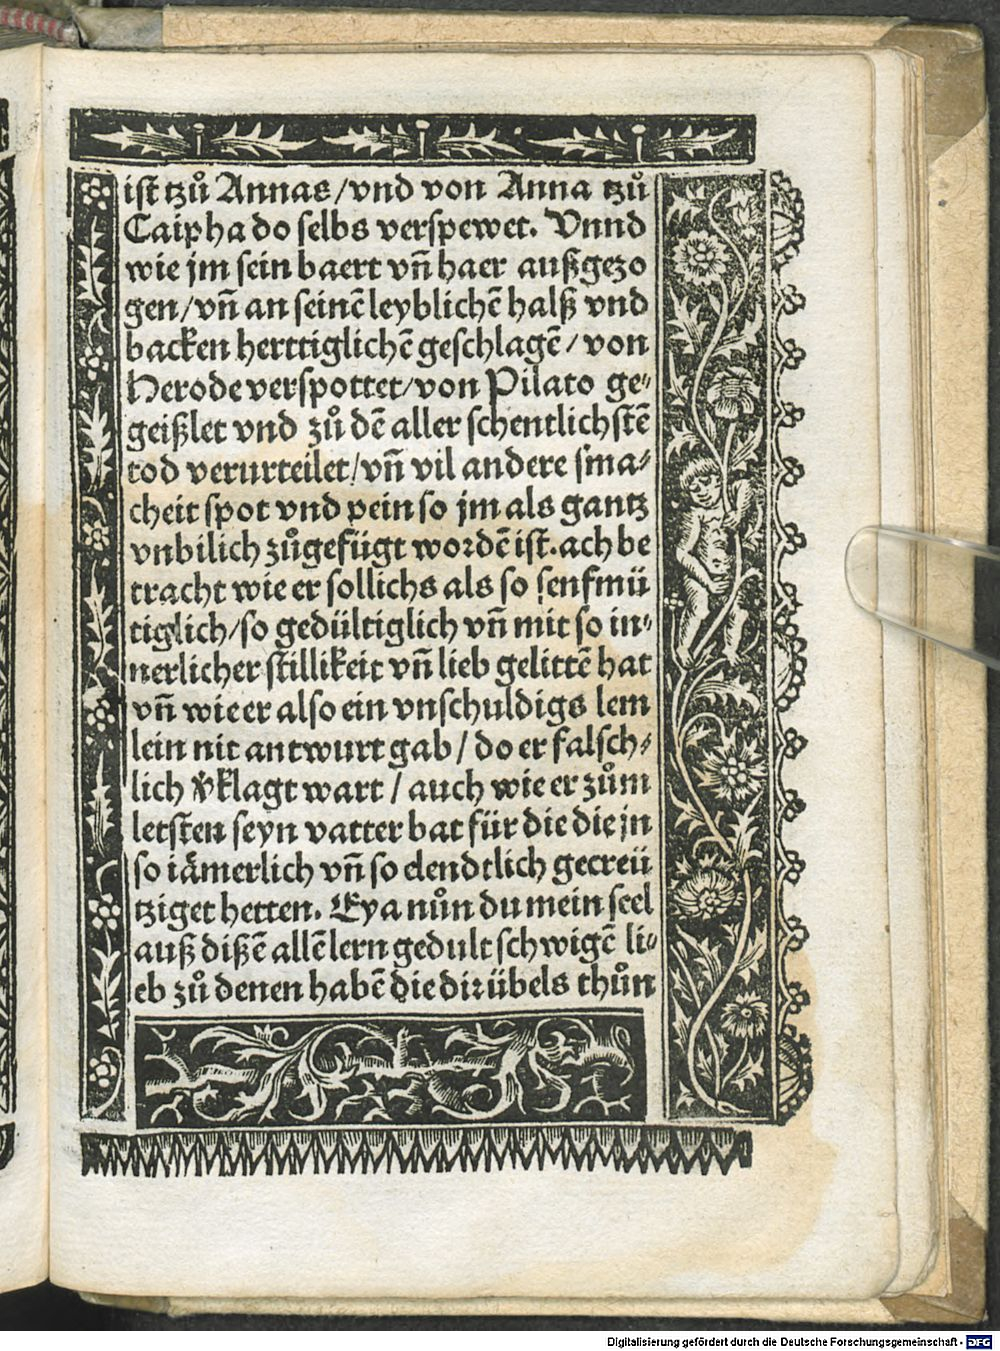 ist tzů Annas/vnd von Anna tzů
Caipha do selbs verspewet. Vnnd
wie jm sein baert vn̄ haer außgezo
gen/vn̄ an seinē leyblichē halß vnd
backen herttiglichē geschlagē/von
Herode verspottet/von Pilato ge⸗
geißlet vnd zů dē aller schentlichstē
tod verurteilet/vn̄ vil andere sma⸗
cheit spot vnd pein so jm als gantz
vnbilich zůgefügt wordē ist.ach be
tracht wie er sollichs als so senfmü
tiglich/so gedültiglich vn̄ mit so in⸗
nerlicher stillikeit vn̄ lieb gelittē hat
vn̄ wie er also ein vnschuldigs lem
lein nit antwurt gab/do er falsch⸗
lich v̓klagt wart/auch wie er zům
letsten seyn vatter bat für die die jn
so iämerlich vn̄ so elendtlich gecreü
tziget hetten. Eya nůn du mein seel
auß dißē allē lern gedult schwigē li⸗
eb zů denen habē die dir übels thůn
Digitalisierung gefördert durch die Deutsche Forschungsgemeinschaft - DFG